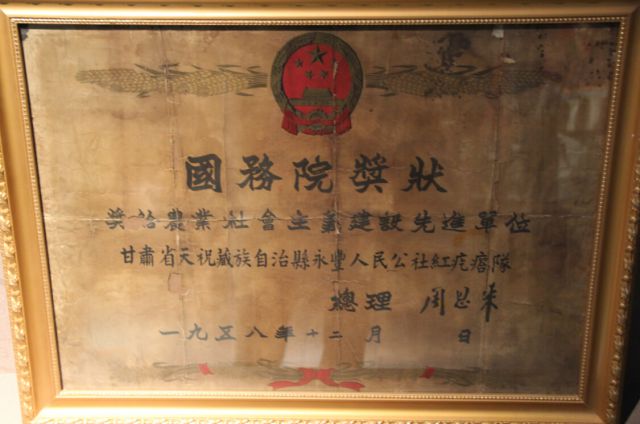 國務院獎狀
獎給農業社會主義建設先進單位
甘肅省天祝藏族自治縣永豐人民公社紅疙瘩隊
總理 周恩來
一九五八年十二月 日